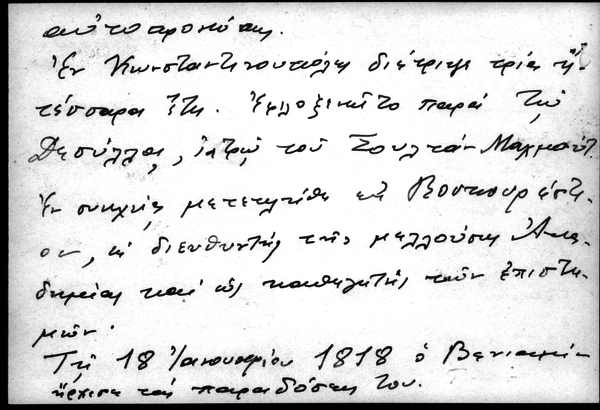 αὐτοπροσώπως.
Ἐν Κωνσταντινουπόλει διέτριψε τρία ἤ
τέσσαρα ἔτη. Ἐφιλοξενεῖτο παρά τῷ
Δεσύλλᾳ, ἰατρῷ τοῦ Σουλτάν Μαχμούτ.
Ἐν συνεχείᾳ μετεκλήθη εἰς Βουκουρέστι-
ον, ὡς διευθυντής τῆς μελλούσης Ἀκα-
δημείας καί ὡς καθηγητής τῶν ἐπιστη-
μῶν.
Τῇ 18 Ἰανουαρίου 1818 ὁ Βενιαμίν
ἤρχισε τάς παραδόσεις του.